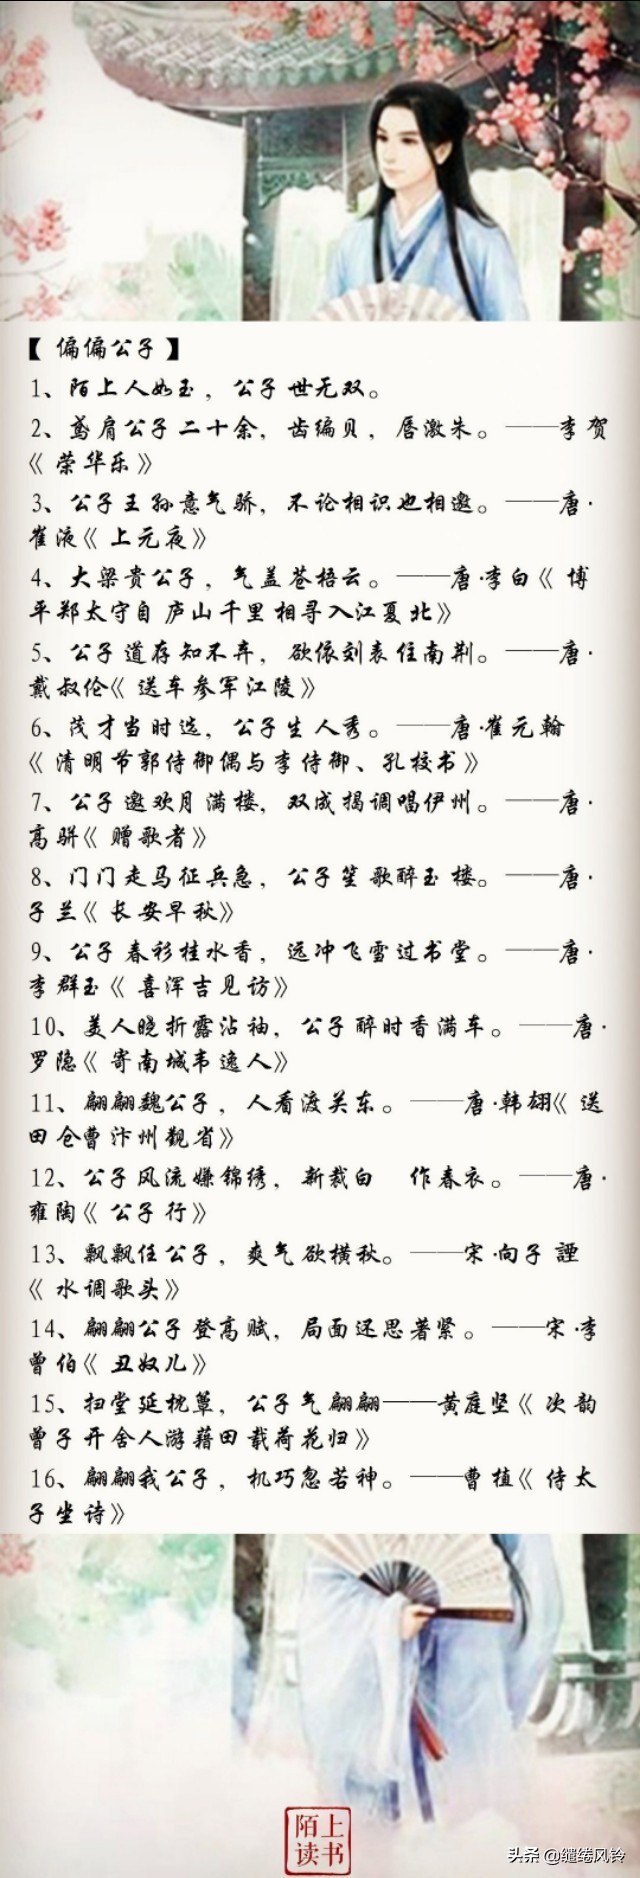 【偏偏公子】
1、陌上人如玉，公子世无双。
2、鸢肩公子二十余，齿编贝，唇激朱。——李贺
《荣华乐》
3、公子王孙意气骄，不论相识也相邀。——唐·
崔液《上元夜》
4、大梁贵公子，气盖苍梧云。——唐·李白《博
平郑太守自庐山千里相寻入江夏北》
5、公子道存知不弃，欲依刘表住南荆。——唐·
戴叔伦《送车参军江陵》
6、茂才当时选，公子生人秀。——唐·崔元翰
《清明节郭侍御偶与李侍御、孔校书》
7、公子邀欢月满楼，双成揭调唱伊州。——唐·
高骈《赠歌者》
8、门门走马征兵急，公子笙歌醉玉楼。——唐·
子兰《长安早秋》
9、公子春衫桂水香，远冲飞雪过书堂。——唐·
李群玉《喜浑吉见访》
10、美人晓折露沾袖，公子醉时香满车。——唐·
罗隐《寄南城韦逸人》
11、翩翩魏公子，人看渡关东。——唐·韩翃《送
田仓曹汴州觐省》
12、公子风流嫌锦绣，新裁白 作春衣。——唐·
雍陶《公子行》
13、飘飘任公子，爽气欲横秋。——宋·向子諲
《水调歌头》
14、翩翩公子登高赋，局面还思著紧。——宋·李
曾伯《丑奴儿》
15、扫堂延枕簟，公子气翩翩——黄庭坚《次韵
曾子开舍人游藉田载荷花归》
16、翩翩我公子，机巧忽若神。——曹植《侍太
子坐诗》
陌上
读书
头条 @缱绻风铃